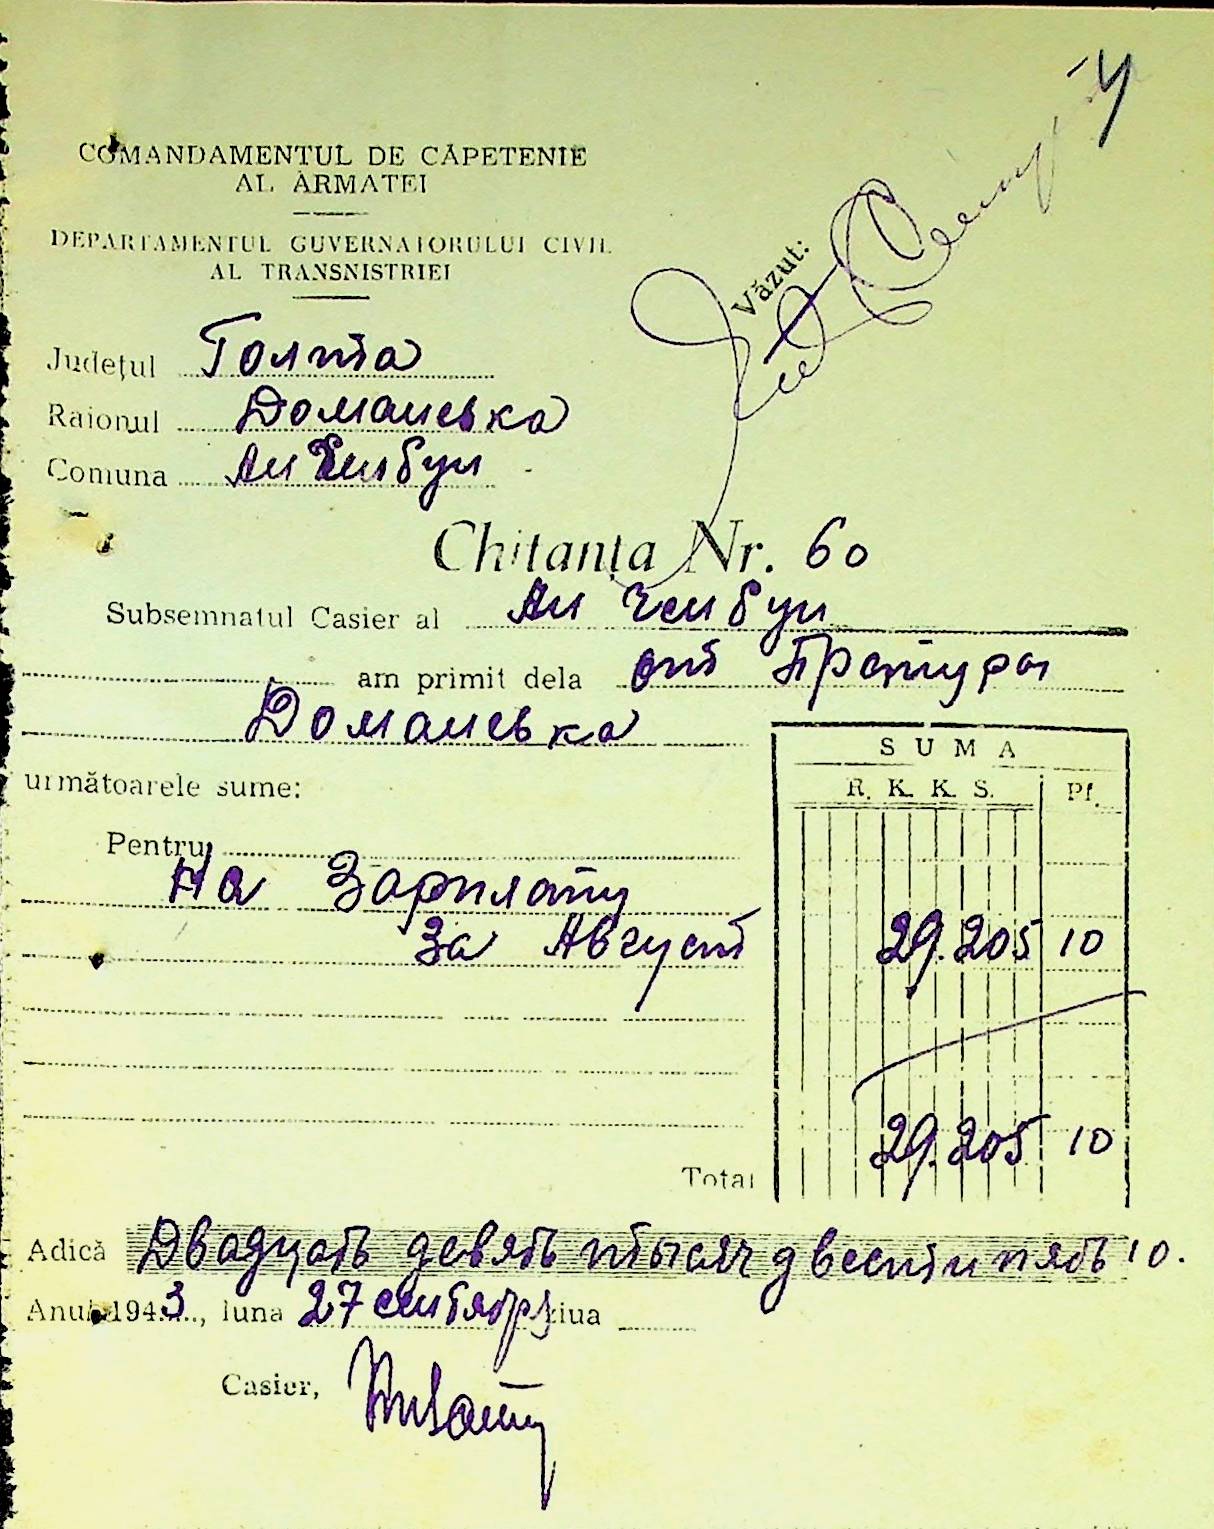 COMANDAMENTUL DE CĂPETENIE
AL ARMATEI
DEPARTAMENTUL GUVERNATORULUI CIVIL
AL TRANSNISTRIEI
Văzut:
Județul Голта
Raionul Доманевка
Comuna
Chitanța Nr. 60
Subsemnatul Casier al
am primit dela от Претуры
Доманевка
următoarele sume:
SUMA
R. K. K. S. Pf.
Pentru
на Зарплату
за Август 29.205 10
Total 29.205 10
Adică Двадцать девять тысяч двести пять 10.
Anul 1943, luna 27 сентября ziua
Casier,